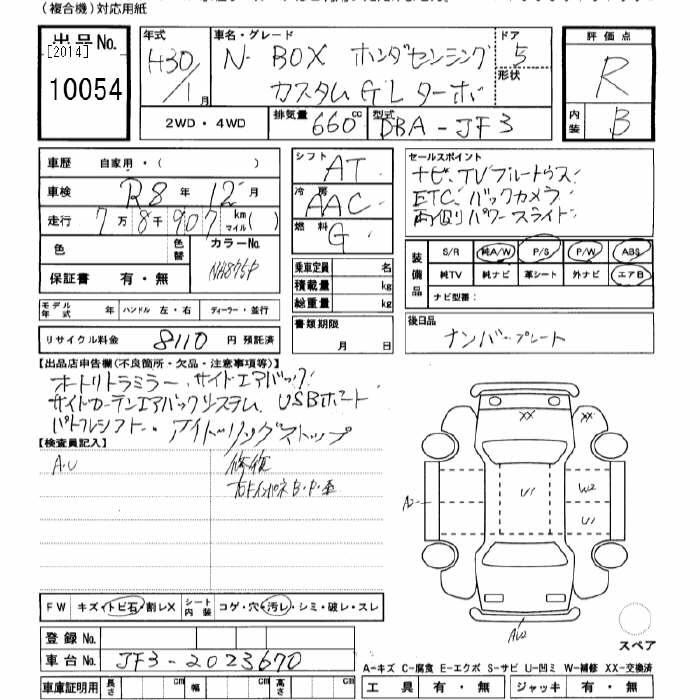 (複合機)対応用紙
出品No. [2014] 10054
年式 H30/1月
車名・グレード N-BOX ホンダセンシング
カスタムG・Lターボ
ドア 5
形状
2WD・4WD 排気量 660cc 型式 DBA-JF3
評価点 R
内装 B
車歴 自家用・( )
車検 R8年 12月
走行 7万8千907 km マイル( )
色 色替 カラーNo. NH875P
保証書 有・無
シフト AT
冷房 AAC
燃料 G
乗車定員 名
積載量 kg
総重量 kg
セールスポイント
ナビ、TVブルートゥス
ETC、バックカメラ
両側パワースライド
装備品 S/R 純A/W P/S P/W ABS
純TV 純ナビ 革シート 外ナビ エアB
ナビ型番:
モデル年式 年 ハンドル 左・右 ディーラー・並行
リサイクル料金 8110 円 預託済
書類期限 月 日
後日品
ナンバープレート
【出品店申告欄(不良箇所・欠品・注意事項等)】
オートリトラミラー、サイドエアバック
サイドカーテンエアバックシステム、USBポート
パドルシフト、アイドリングストップ
【検査員記入】
A・U 修復
XX XX
A2 U1 W2
U1
AU2
FW キズ・トビ石・割レX シート内装 コゲ・穴・汚レ・シミ・破レ・スレ
登録No.
車台No. JF3-2023670
車庫証明用 長さ cm 幅 cm 高さ cm
スペア
A-キズ C-腐食 E-エクボ S-サビ U-凹ミ W-補修 XX-交換済
工具 有・無 ジャッキ 有・無